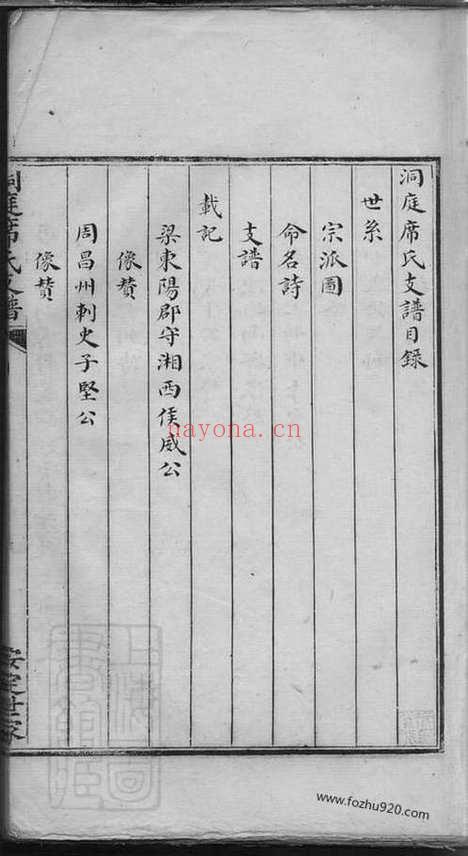 洞庭席氏支譜目錄
世系
宗派圖
命名詩
支譜
載記
梁東陽郡守湘西侯威公
像贊
周昌州刺史子堅公
像贊
洞庭席氏支譜
安定世家
nayona.cn
www.fozhu920.com